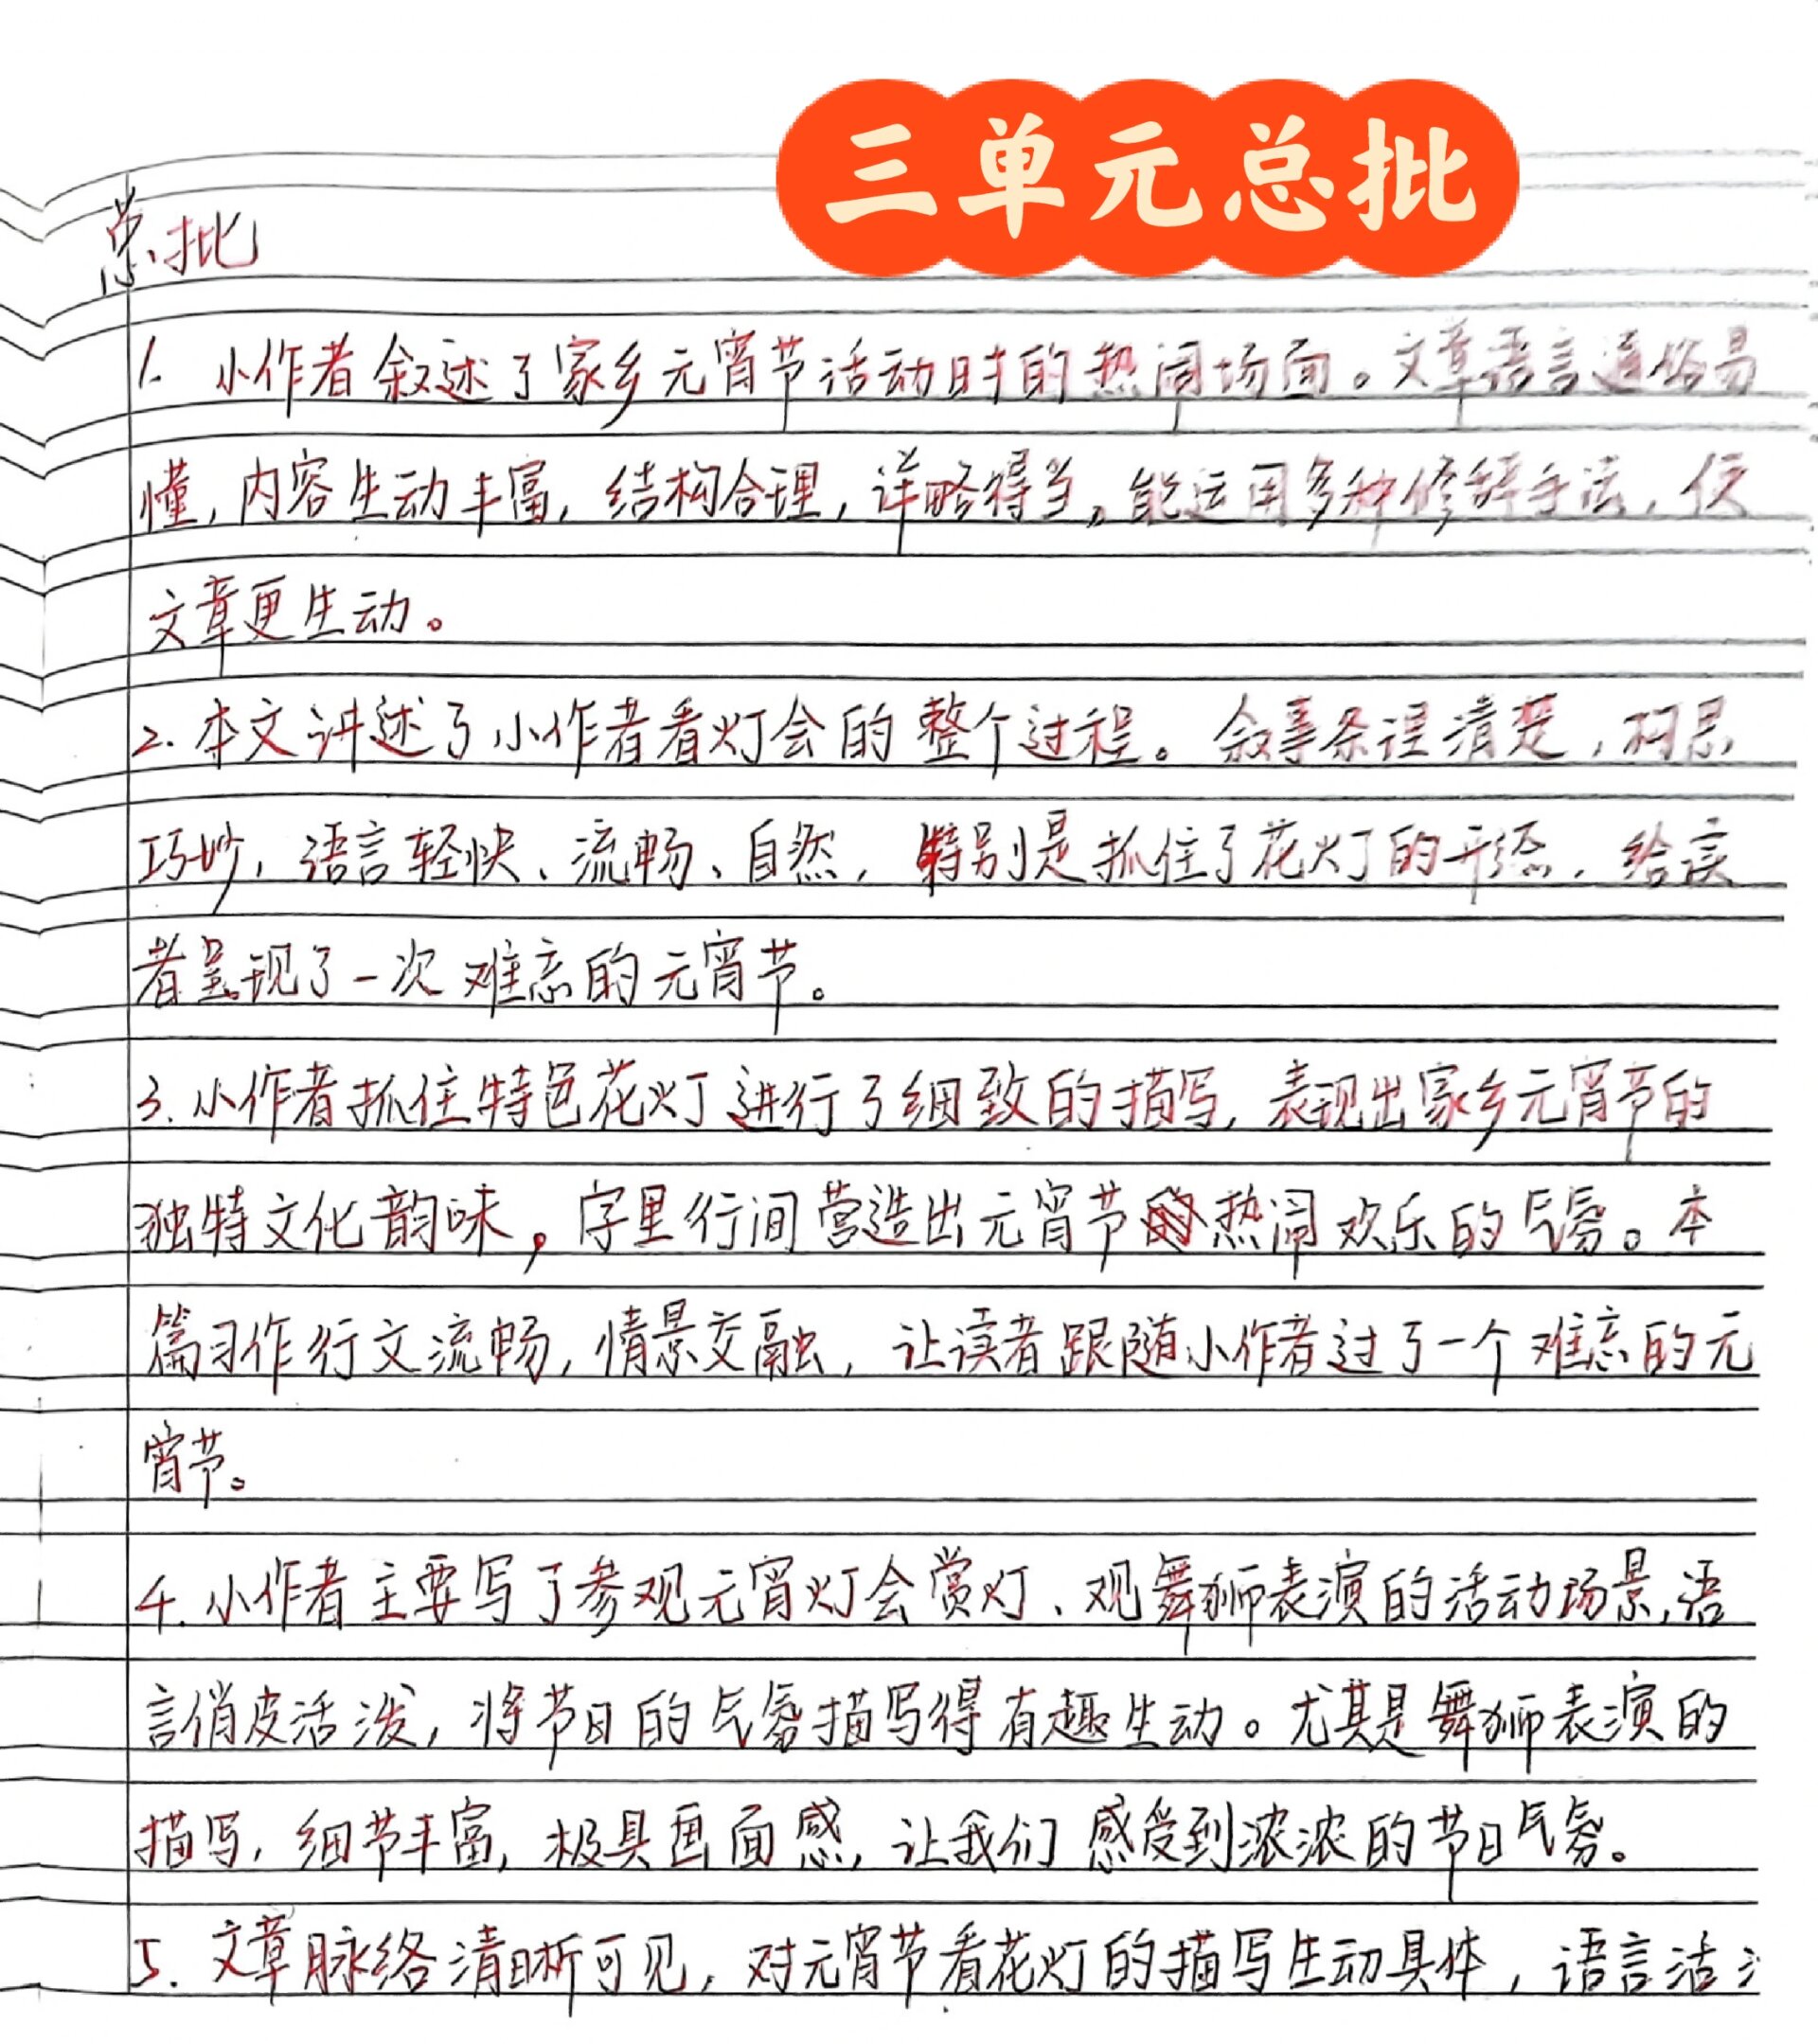 三单元总批
总批
1. 小作者叙述了家乡元宵节活动时的热闹场面。文章语言通俗易
懂，内容生动丰富，结构合理，详略得当。能运用多种修辞手法，使
文章更生动。
2. 本文讲述了小作者看灯会的整个过程。叙事条理清楚，构思
巧妙，语言轻快、流畅、自然，特别是抓住了花灯的形态，给读
者呈现了一次难忘的元宵节。
3. 小作者抓住特色花灯进行了细致的描写，表现出家乡元宵节的
独特文化韵味，字里行间营造出元宵节热闹欢乐的气氛。本
篇习作行文流畅，情景交融，让读者跟随小作者过了一个难忘的元
宵节。
4. 小作者主要写了参观元宵灯会赏灯、观舞狮表演的活动场景，语
言俏皮活泼，将节日的气氛描写得有趣生动。尤其是舞狮表演的
描写，细节丰富，极具画面感，让我们感受到浓浓的节日气氛。
5. 文章脉络清晰可见，对元宵节看花灯的描写生动具体，语言活